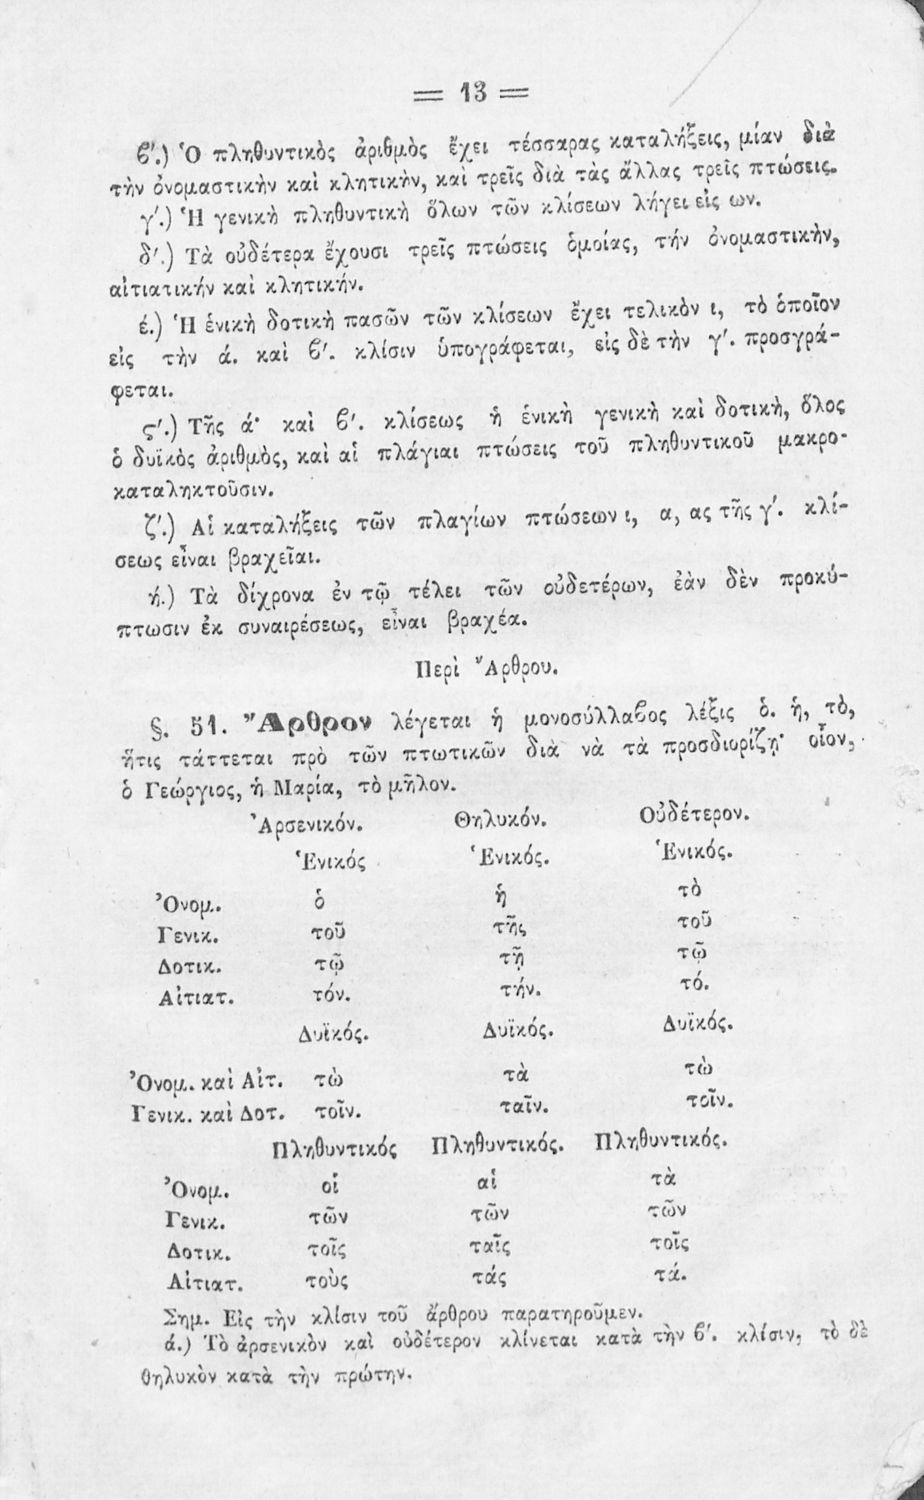 = 13 =
ϐ΄.) Ὁ πληθυντικὸς ἀριθμὸς ἔχει τέσσαρας καταλήξεις, μίαν διὰ
τὴν ὀνομαστικὴν καὶ κλητικὴν, καὶ τρεῖς διὰ τὰς ἄλλας τρεῖς πτώσεις.
γ΄.) Ἡ γενικὴ πληθυντικὴ ὅλων τῶν κλίσεων λήγει εἰς ων.
δ΄.) Τὰ οὐδέτερα ἔχουσι τρεῖς πτώσεις ὁμοίας, τήν ὀνομαστικὴν,
αἰτιατικήν καὶ κλητικήν.
έ.) Ἡ ἑνικὴ δοτικὴ πασῶν τῶν κλίσεων ἔχει τελικὸν ι, τὸ ὁποῖον
εἰς τὴν ά. καὶ ϐ΄. κλίσιν ὑπογράφεται, εἰς δὲ τὴν γ΄. προσγρά-
φεται.
ϛ΄.) Τῆς ά· καὶ ϐ΄. κλίσεως ἡ ἑνικὴ γενικὴ καὶ δοτικὴ, ὅλος
ὁ δυϊκὸς ἀριθμὸς, καὶ αἱ πλάγιαι πτώσεις τοῦ πληθυντικοῦ μακρο-
καταληκτοῦσιν.
ζ΄.) Αἱ καταλήξεις τῶν πλαγίων πτώσεων ι, α, ας τῆς γ΄. κλί-
σεως εἶναι βραχεῖαι.
ή.) Τὰ δίχρονα ἐν τῷ τέλει τῶν οὐδετέρων, ἐὰν δὲν προκύ-
πτωσιν ἐκ συναιρέσεως, εἶναι βραχέα.
Περὶ Ἄρθρου.
§. 51. Ἄρθρον λέγεται ἡ μονοσύλλαϐος λέξις ὁ. ἡ, τὸ,
ἥτις τάττεται πρὸ τῶν πτωτικῶν διὰ νὰ τὰ προσδιορίζῃ· οἷον,
ὁ Γεώργιος, ἡ Μαρία, τὸ μῆλον.
Ἀρσενικόν. Θηλυκόν. Οὐδέτερον.
Ἑνικός Ἑνικός. Ἑνικός.
Ὀνομ. ὁ ἡ τὸ
Γενικ. τοῦ τῆς τοῦ
Δοτικ. τῷ τῇ τῷ
Αἰτιατ. τόν. τήν. τό.
Δυϊκός. Δυϊκός. Δυϊκός.
Ὀνομ. καὶ Αἰτ. τὼ τὰ τὼ
Γενικ. καὶ Δοτ. τοῖν. ταῖν. τοῖν.
Πληθυντικός Πληθυντικός. Πληθυντικός.
Ὀνομ. οἱ αἱ τὰ
Γενικ. τῶν τῶν τῶν
Δοτικ. τοῖς ταῖς τοῖς
Αἰτιατ. τοὺς τάς τά.
Σημ. Εἰς τὴν κλίσιν τοῦ ἄρθρου παρατηροῦμεν.
ά.) Τὸ ἀρσενικὸν καὶ οὐδέτερον κλίνεται κατὰ τὴν ϐ΄. κλίσιν, τὸ δὲ
θηλυκὸν κατὰ τὴν πρώτην.